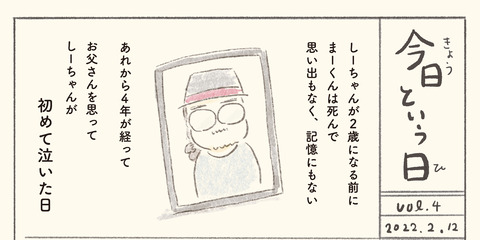 今日という日
きょう
ひ
vol.4
2022.2.12
しーちゃんが2歳になる前に
まーくんは死んで
思い出もなく、記憶にもない
あれから4年が経って
お父さんを思って
しーちゃんが
初めて泣いた日